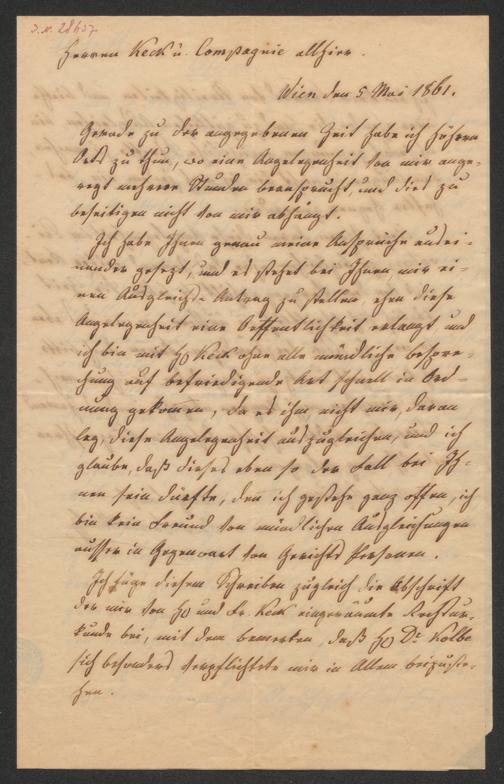 J.N. 28637
Herren Keck u. Compagnie allhier.
Wien den 5 Mai 1861.
Gerade zu der angegebenen Zeit habe ich höhern
Orts zu thun, wo eine Angelegenheit von mir ange-
regt mehrere Stunden beansprucht, und dies zu
beseitigen nicht von mir abhängt.
Ich habe Ihnen genau meine Ansprüche ausei-
nander gesezt, und es stehet bei Ihnen mir ei-
nen Ausgleichs-Antrag zu stellen ehen diese
Angelegenheit eine Oeffentlichkeit erlangt und
ich bin mit H Keck ohne alle mündliche bespre-
chung auf befriedigende Art schnell in Ord-
nung gekomen, da es ihm nicht mir, daran
lag, diese Angelegenheit auszugleichen, und ich
glaube, daß dieses eben so der Fall bei Ih-
nen sein dürfte, den ich gestehe ganz offen, ich
bin kein Freund von mündlichen Ausgleichungen
ausser in Gegenwart von Gerichts Personen.
Ich füge diesem Schreiben zugleich die Abschrift
der mir von H und Fr. Keck eingeräumte Rechtsur-
kunde bei, mit dem bemerken, daß H Dr Kolbe
sich besonders verpflichtete mir in Allem beizuste-
hen.